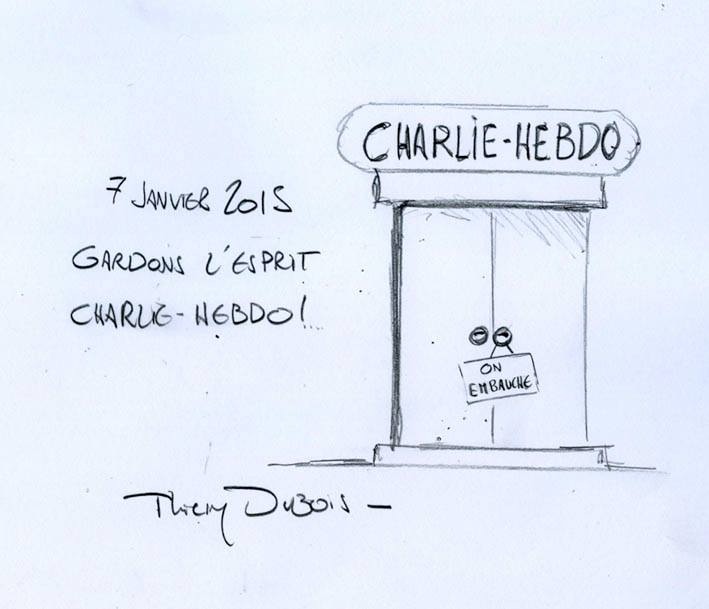 CHARLIE-HEBDO
7 JANVIER 2015
GARDONS L'ESPRIT
CHARLIE-HEBDO!
ON
EMBAUCHE
Thierry DUBOIS